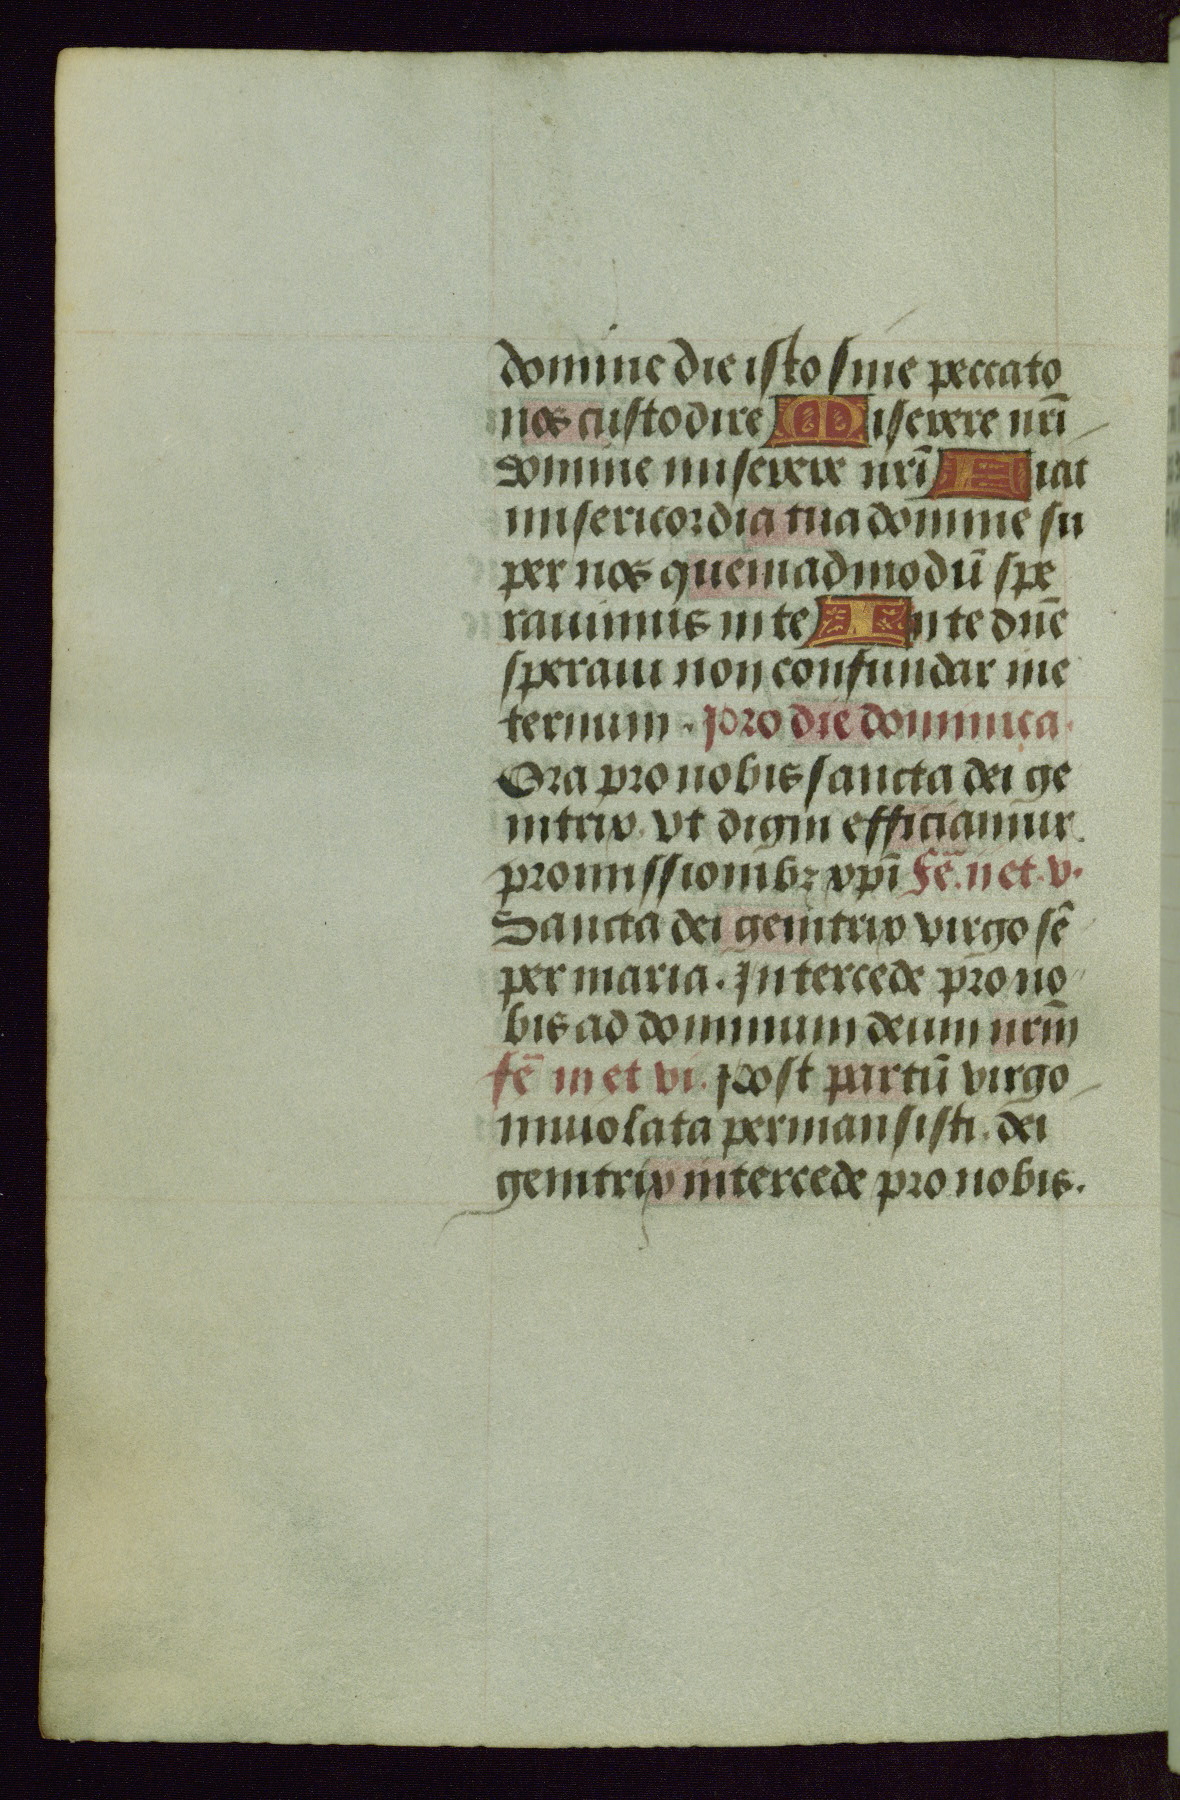 domine die isto sine peccato
nos custodire Miserere nrī
domine miserere nrī Fiat
misericordia tua domine su
per nos quemadmodū spe
rauimus in te In te dn̄e
speraui non confundar in e
ternum. Pro die dominica.
Ora pro nobis sancta dei ge
nitrix. Vt digni efficiamur
promissionibꝫ xp̄i Fē. ii et. v.
Sancta dei genitrix virgo sē
per maria. Intercede pro no
bis ad dominum deum nrm̄
fē iii et vi. Post partū virgo
inuiolata permansisti. dei
genitrix intercede pro nobis.